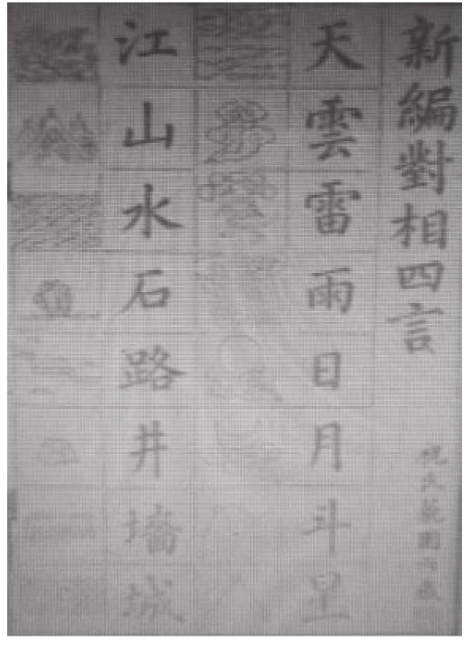 新編對相四言
天雲雷雨日月斗星
江山水石路井墻城